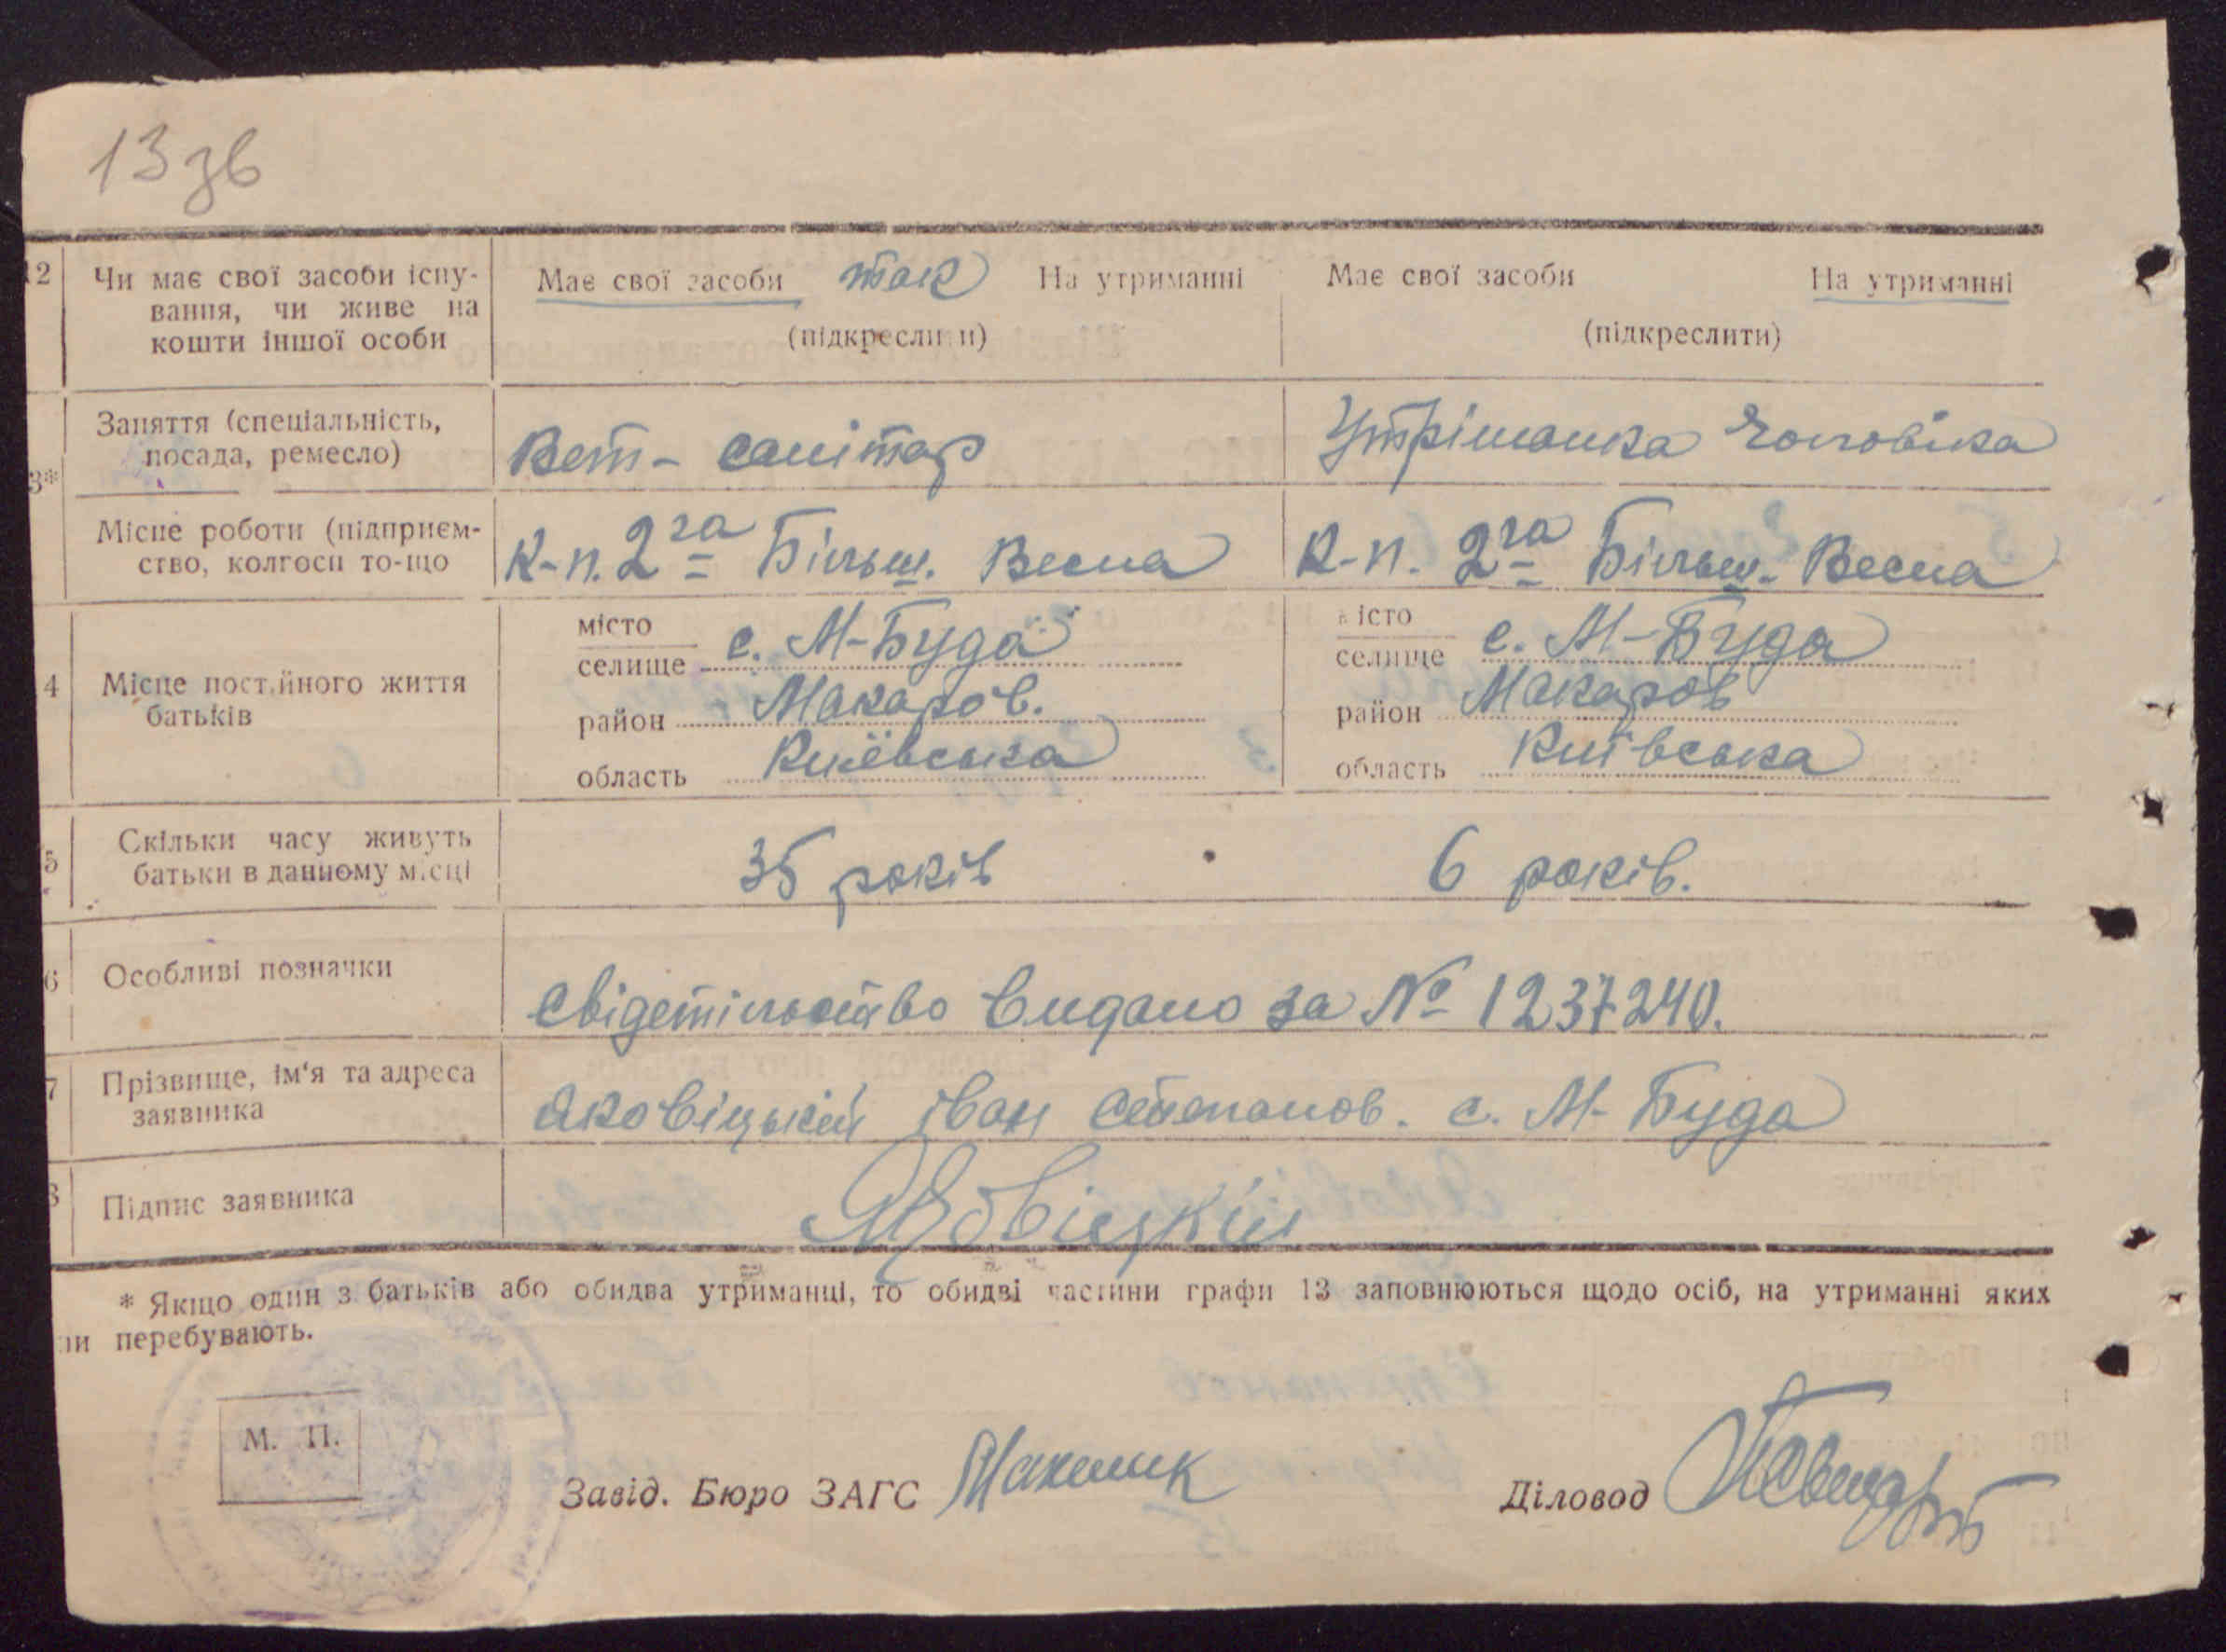 13 зв
12 Чи має свої засоби існу-
вання, чи живе на
кошти іншої особи
Має свої засоби так На утриманні
(підкреслити)
Має свої засоби На утриманні
(підкреслити)
3* Заняття (спеціальність,
посада, ремесло)
Вет-санітар
Утріманка чоловіка
Місце роботи (підприєм-
ство, колгосп то-що
К-п. 2га Більш. Весна
К-п. 2га Більш. Весна
4 Місце постійного життя
батьків
місто
селище с. М-Буда
район Макаров.
область Киівська
місто
селище с. М-Буда
район Макаров
область Київська
5 Скільки часу живуть
батьки в данному місці
35 років
6 років.
6 Особливі позначки
Свідетільство видано за № 1237240.
7 Прізвище, ім'я та адреса
заявника
Яковіцький Іван Степанов. с. М-Буда
8 Підпис заявника
Яковіцкій
* Якщо один з батьків або обидва утриманці, то обидві частини графи 13 заповнюються щодо осіб, на утриманні яких
ни перебувають.
М. П.
Завід. Бюро ЗАГС
Діловод